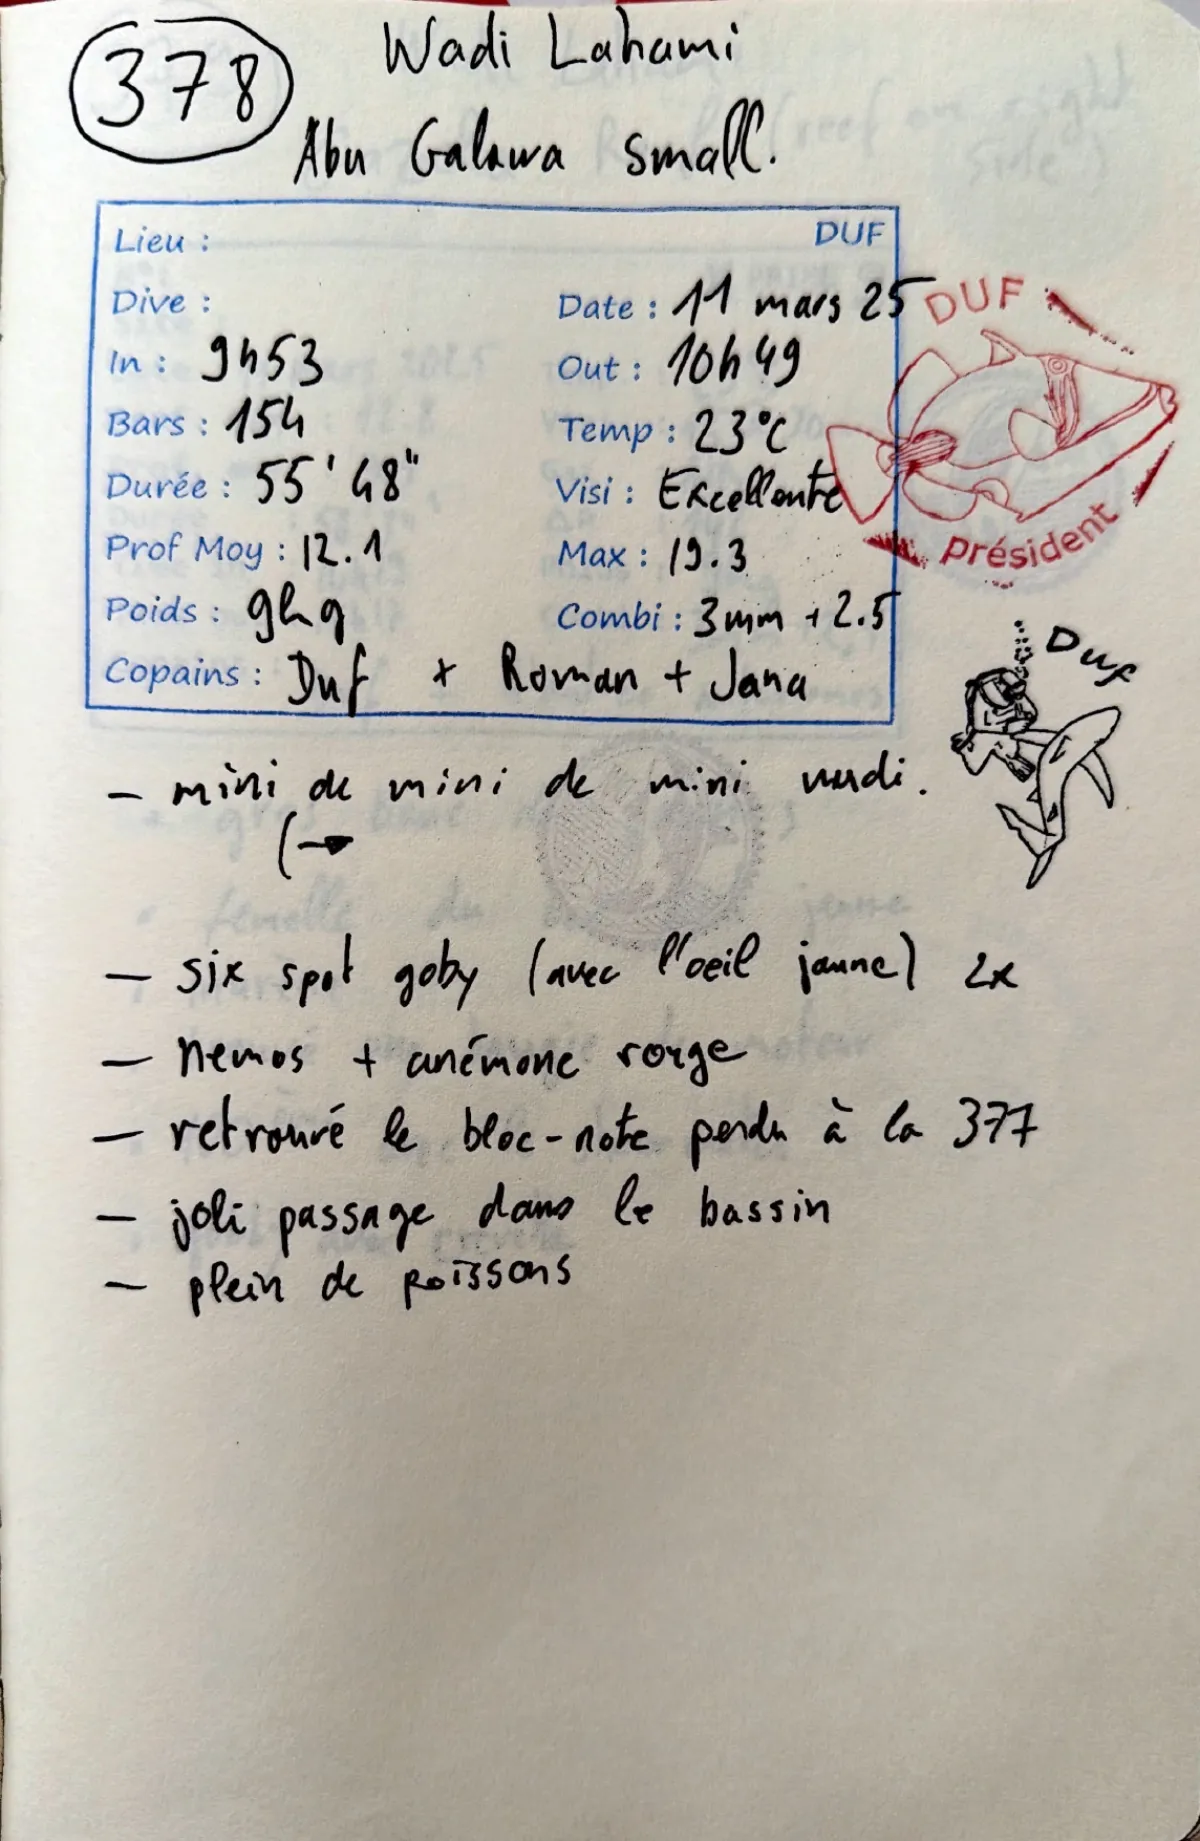 378
Wadi Lahami
Abu Galawa small.
Lieu : DUF
Dive : Date : 11 mars 25
In : 9h53 Out : 10h49
Bars : 154 Temp : 23°C
Durée : 55'48" Visi : Excellente
Prof Moy : 12.1 Max : 19.3
Poids : 9kg Combi : 3mm + 2.5
Copains : Duf + Roman + Jana
DUF
président
Duf
– mini de mini de mini nudi.
– six spot goby (avec l'oeil jaune) 2x
– nemos + anémone rouge
– retrouvé le bloc-note perdu à la 377
– joli passage dans le bassin
– plein de poissons